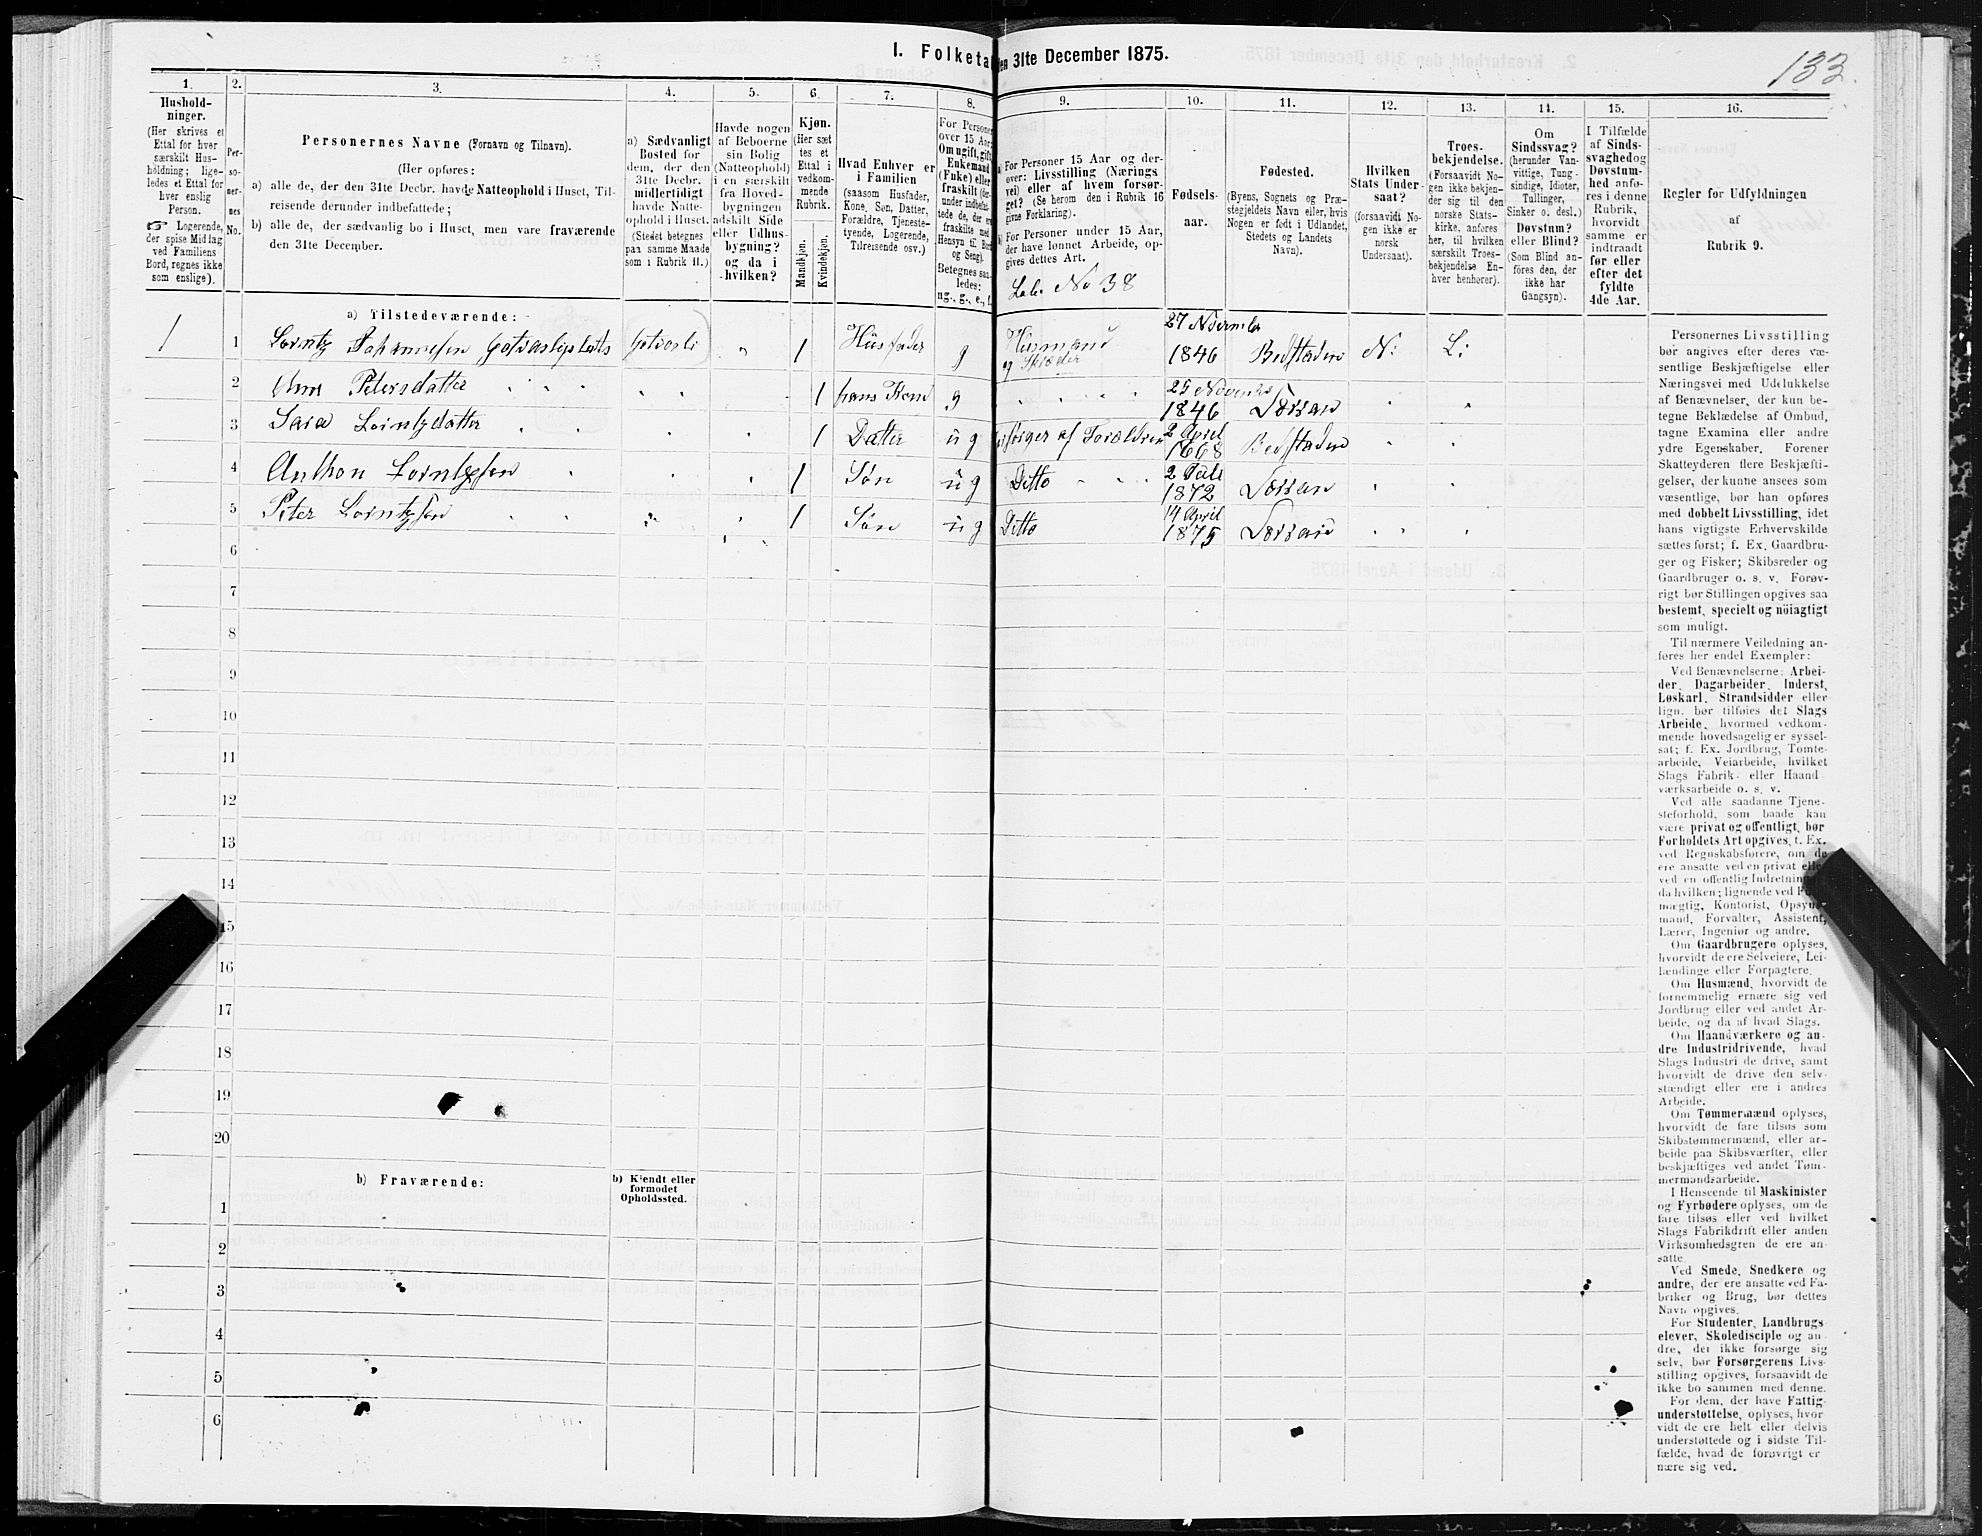 I. Folketa
den 31te December 1875.
133.
1.
Hushold-
ninger.
(Her skrives et
Ettal for hver
særskilt Hus-
holdning; lige-
ledes et Ettal for
hver enslig
Person.
☞ Logerende,
der spise Middag
ved Familiens
Bord, regnes ikke
som enslige).
2.
Per-
so-
ner-
nes
No.
3.
Personernes Navne (Fornavn og Tilnavn).
(Her opføres:
a) alle de, der den 31te Decbr. havde Natteophold i Huset, Til-
reisende derunder indbefattede;
b) alle de, der sædvanlig bo i Huset, men vare fraværende
den 31te December.
4.
a) Sædvanligt
Bosted for
dem, der den
31te Decbr.
midlertidigt
havde Natte-
ophold i Huset.
(Stedet betegnes
paa samme Maade
som i Rubrik 11.)
5.
Havde nogen
af Beboerne
sin Bolig
(Natteophold)
i en særskilt
fra Hoved-
bygningen
adskilt Side
eller Udhus-
bygning?
og da i
hvilken?
6.
Kjøn.
(Her sæt
tes et
Ettal i
vedkom-
mende
Rubrik.
Mandkjøn.
Kvindekjøn.
7.
Hvad Enhver er
i Familien
(saasom Husfader,
Kone, Søn, Datter,
Forældre, Tjeneste-
tyende, Logerende,
Tilreisende osv.)
8.
For Personer
over 15 Aar:
Om ugift, gift,
Enkemand
(Fuke) eller
fraskilt (der-
under indbefat-
tede de, der ere
fraskilte med
Hensyn til Bord
og Seng).
Betegnes saa-
ledes:
ug., g., e., f.
9.
For Personer 15 Aar og der-
over: Livsstilling (Nærings
vei) eller af hvem forsør-
get? (Se herom den i Rubrik 16
givne Forklaring).
For Personer under 15 Aar,
der have lønnet Arbeide, op-
gives dettes Art.
Lobe No 38
10.
Fødsels-
aar.
11.
Fødested.
(Byens, Sognets og Præ-
stegjeldets Navn eller, hvis
Nogen er født i Udlandet,
Stedets og Landets
Navn).
12.
Hvilken
Stats Under-
saat?
(forsaavidt No-
gen ikke er
norsk
Undersaat).
13.
Troes-
bekjendelse.
(Forsaavidt No-
gen ikke bekjen-
der sig til den
norske Stats-
kirke, anføres
her, til hvilken
særskilt Troes-
bekjendelse En-
hver henhører).
14.
Om
Sindssvag?
(herunder Van-
vittige, Tung-
sindige, Idioter,
Tullinger,
Sinker o. desl.)
Døvstum?
eller Blind?
(Som Blind an-
føres den, der
ikke har
Gangsyn).
15.
I Tilfælde
af Sinds-
svaghed og
Døvstum-
hed anfø-
res i denne
Rubrik,
hvorvidt
samme er
indtraadt
før eller
efter det
fyldte
4de Aar.
16.
Regler for Udfyldningen
af
Rubrik 9.
a) Tilstedeværende:
1 1 Lorntz Johannesen 1 Husfader g Husmand og Skræder 27 November 1846 Bedstaden N: L:
2 Ane Petersdatter 1 hans Kone g 25 November 1846 Lexsan
3 Sara Lorntzdatter 1 Datter ug forsørges af Forældren 2 April 1868 Bedstaden
4 Anthon Lorntzsen 1 Søn ug Ditto 2 1872 Lexsan
5 Peter Lorntzsen 1 Søn ug Ditto 14 April 1875 Lexsan
6
7
8
9
10
11
12
13
14
15
16
17
18
19
20
b) Fraværende:
b) Kjendt eller
formodet
Opholdssted.
1
2
3
4
5
6
Personernes Livsstilling
bør angives efter deres væ-
sentlige Beskjæftigelse eller
Næringsvei med Udelukkelse
af Benævnelser, der kun be-
tegne Beklædelse af Ombud,
tagne Examina eller andre
ydre Egenskaber. Forener
Skatteyderen flere Beskjæfti-
gelser, der kunne ansees som
væsentlige, bør han opføres
med dobbelt Livsstilling, idet
hans vigtigste Erhvervskilde
sættes først; f. Ex. Gaardbru-
ger og Fisker; Skibsreder og
Gaardbruger o. s. v. Forøv-
rigt bør Stillingen opgives saa
bestemt, specielt og nöiagtigt
som muligt.
Til nærmere Veiledning an-
føres her endel Exempler:
Ved Benævnelserne: Arbei-
der, Dagarbeider, Inderst,
Løskarl, Strandsidder eller
lign. bør tilføies det Slags
Arbeide, hvormed vedkom-
mende hovedsagelig er syssel-
sat; f. Ex. Jordbrug, Tomte-
arbeide, Veiarbeide, hvilket
Slags Fabrik- eller Haand
værksarbeide o. s. v.
Ved alle saadanne Tjene-
steforhold, som baade kan
være privat og offentligt, bør
Forholdets Art opgives, t. Ex.
ved Regnskabsførere, om de
ere ansatte ved en privat eller
ved en offentlig Indretning,
da hvilken; lignende ved
mægtig, Kontorist, Opsyns-
mand, Forvalter, Assistent,
Lærer, Ingeniør og andre.
Om Gaardbrugere oplyses,
hvorvidt de ere Selveiere, Lei-
lændinge eller Forpagtere.
Om Husmænd, hvorvidt de
fornemmelig ernære sig ved
Jordbrug eller ved andet Ar-
beide, og da af hvad Slags.
Om Haandværkere og an-
dre Industridrivende, hvad
Slags Industri de drive, samt
hvorvidt de drive den selv-
stændigt eller ere i andres
Arbeide.
Om Tømmermænd oplyses,
hvorvidt de fare tilsøs som
Skibstømmermænd, eller ar-
beide paa Skibsværfter, eller
beskjæftiges ved andet Tøm-
mermandsarbeide.
I Henseende til Maskinister
og Fyrbødere oplyses, om de
fare tilsøs eller ved hvilket
Slags Fabrikdrift eller anden
Virksomhedsgren de ere an-
satte.
Ved Smede, Snedkere og
andre, der ere ansatte ved Fa-
briker og Brug, bør dettes
Navn opgives.
For Studenter, Landbrugs-
elever, Skoledisciple og an-
dre, der ikke forsørge sig
selv, bør Forsørgerens Livs-
stilling opgives, forsaavidt de
ikke bo sammen med denne.
For dem, der have Fattig-
understøttelse, oplyses, hvor
vidt de ere helt eller delvis
understøttede og i sidste Til-
fælde, hvad de forøvrigt er
nære sig ved.